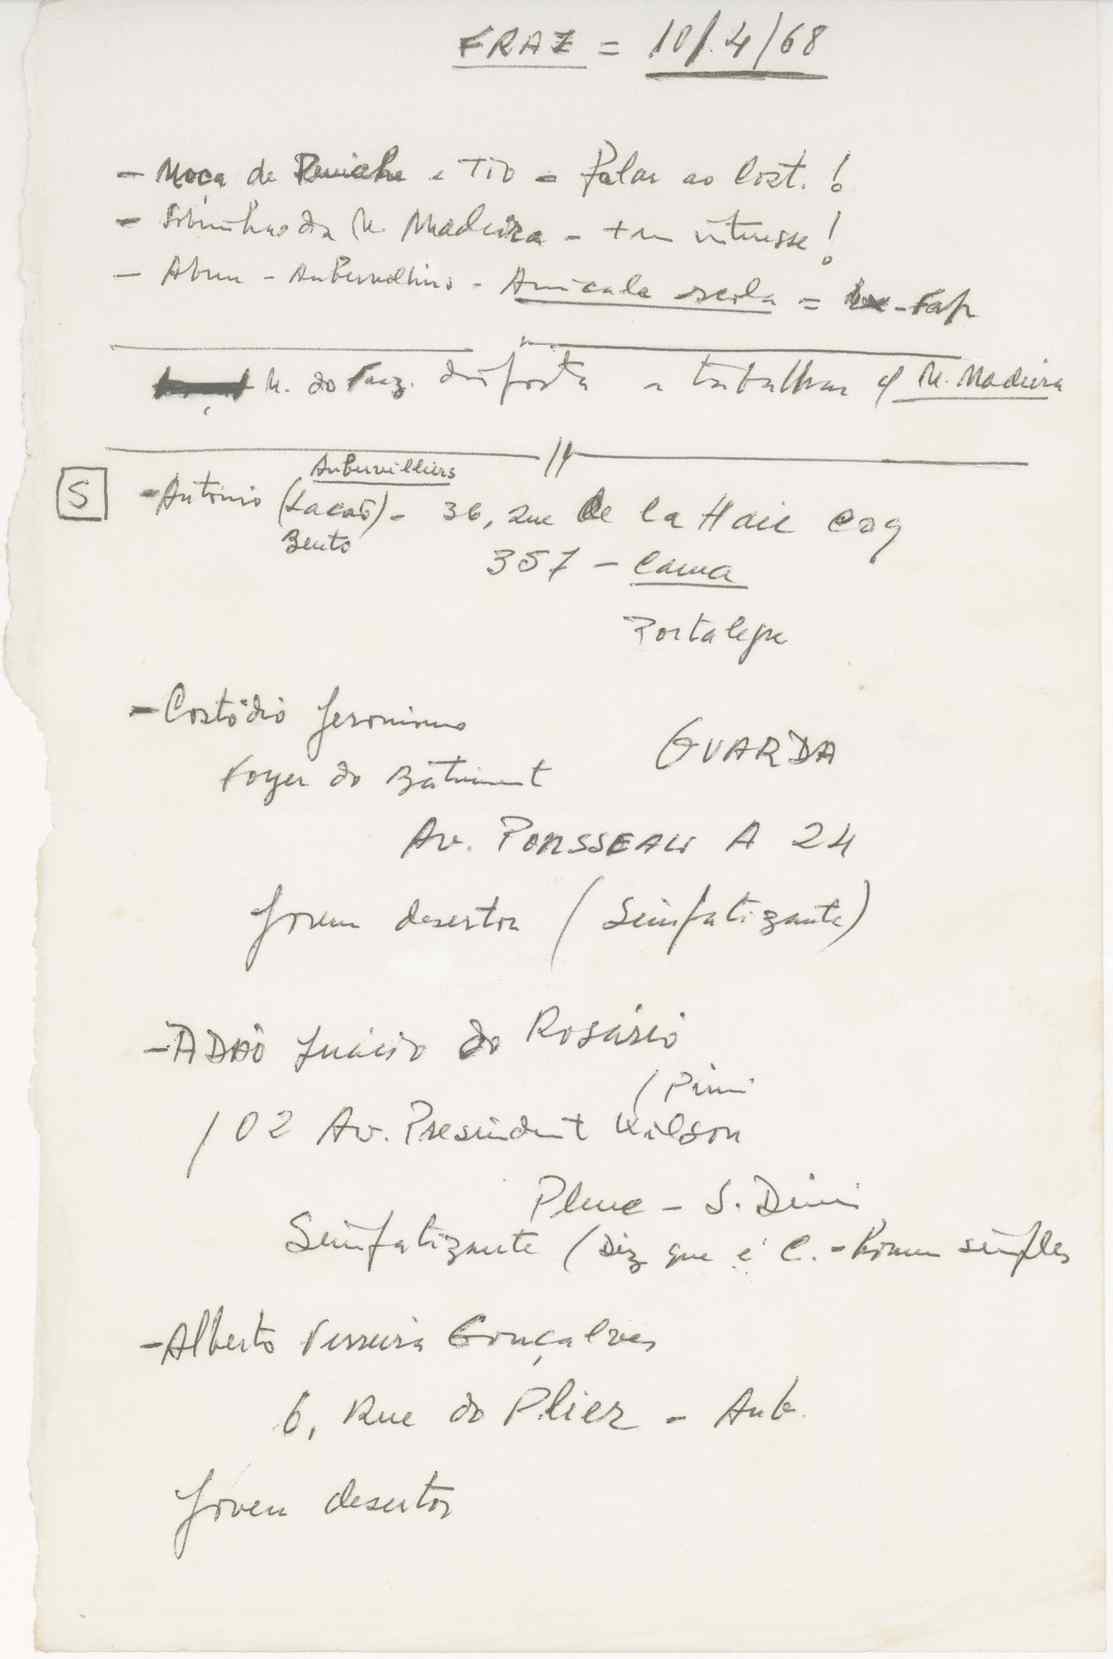 FRAZ = 10/.4/68
- Moça de Peniche e Tio = Falar ao Cost. !
- Sobrinho da M. Madeira - + um interesse !
- Abreu - Aubervilliers - Amicale escola = - Fap
M. do Fraz. disposta a trabalhar c/ M. Madeira
//
Aubervilliers
S - António (Lacão) - 36, Rue de la Haie Coq
Bento
357 - Cama
Portalegre
- Costódio Jeronimo
GUARDA
Foyer do Bâtiment
Av. A 24
Jovem desertor (Simpatizante)
- ADÃO Inácio do Rosário
102 Av. President Wilson
Plene - S. Dini
Simpatizante (Diz que é C. - Homem simples
- Alberto Ferreira Gonçalves
6, Rue do Plier - Aub.
Jovem desertor